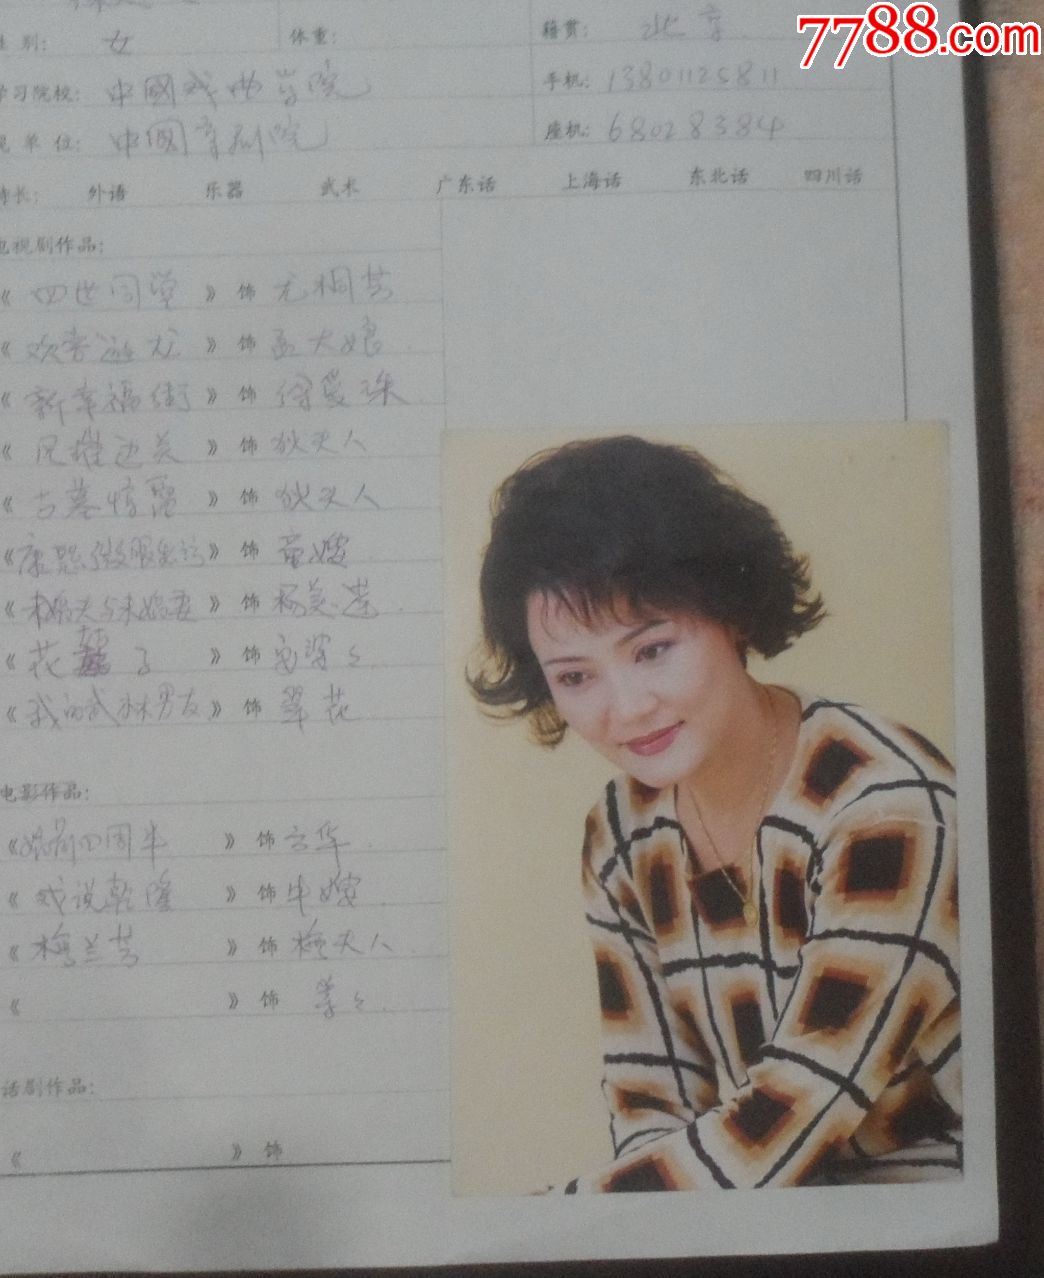 7788.com
性别: 女 体重: 籍贯: 北京
学习院校: 中國戏曲学院 手机: 13801125811
现单位: 中國京剧院 座机: 68028384
特长: 外语 乐器 武术 广东话 上海话 东北话 四川话
电视剧作品:
《四世同堂》饰 尤桐芳
《欢喜游龙》饰 孟大娘
《新幸福街》饰 徐爱珠
《风摧边关》饰 狄夫人
《古墓惊雷》饰 狄夫人
《康熙微服私访》饰 童嫂
《未婚夫与未婚妻》饰 杨美莲
《花轱子》饰
《我的武林男友》饰 翠花
电影作品:
《婚前四周半》饰 云华
《戏说乾隆》饰 牛嫂
《梅兰芳》饰 梅夫人
《 》饰 等等
话剧作品:
《 》饰